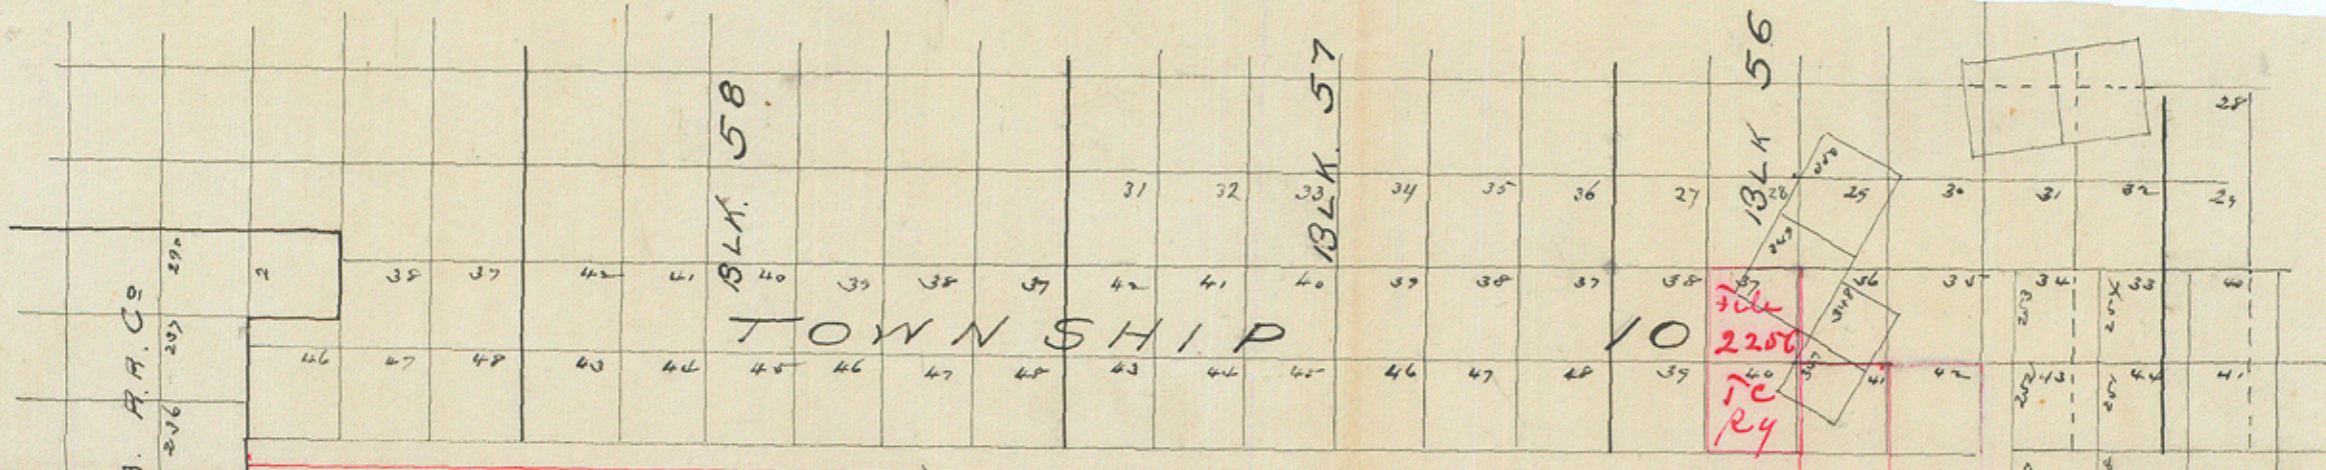 BLK. 58
BLK. 57
BLK 56
28
31 32 33 34 35 36 27 28 29 30 31 32 29
350
349
290
2 38 37 42 41 40 39 38 37 42 41 40 39 38 37 38 37 36 35 34 33 40
R.R. Co
TOWNSHIP 10
File
2256
348
253
46 47 48 43 44 45 46 47 48 43 44 45 46 47 48 39 40 41 42 43 44 41
T C
Ry
347
252
251